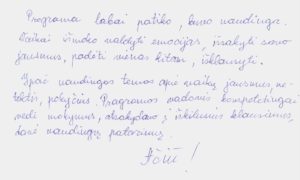 Programa labai patiko, buvo naudinga.
Vaikai išmoko valdyti emocijas, išsakyti savo
jausmus, padėti vienas kitam, išklausyti.
Ypač naudingos temos apie vaikų jausmus, ne-
tektis, pokyčius. Programos vadovės kompetentingai
vedė mokymus, atsakydavo į iškilusius klausimus,
davė naudingų patarimų.
Ačiū!